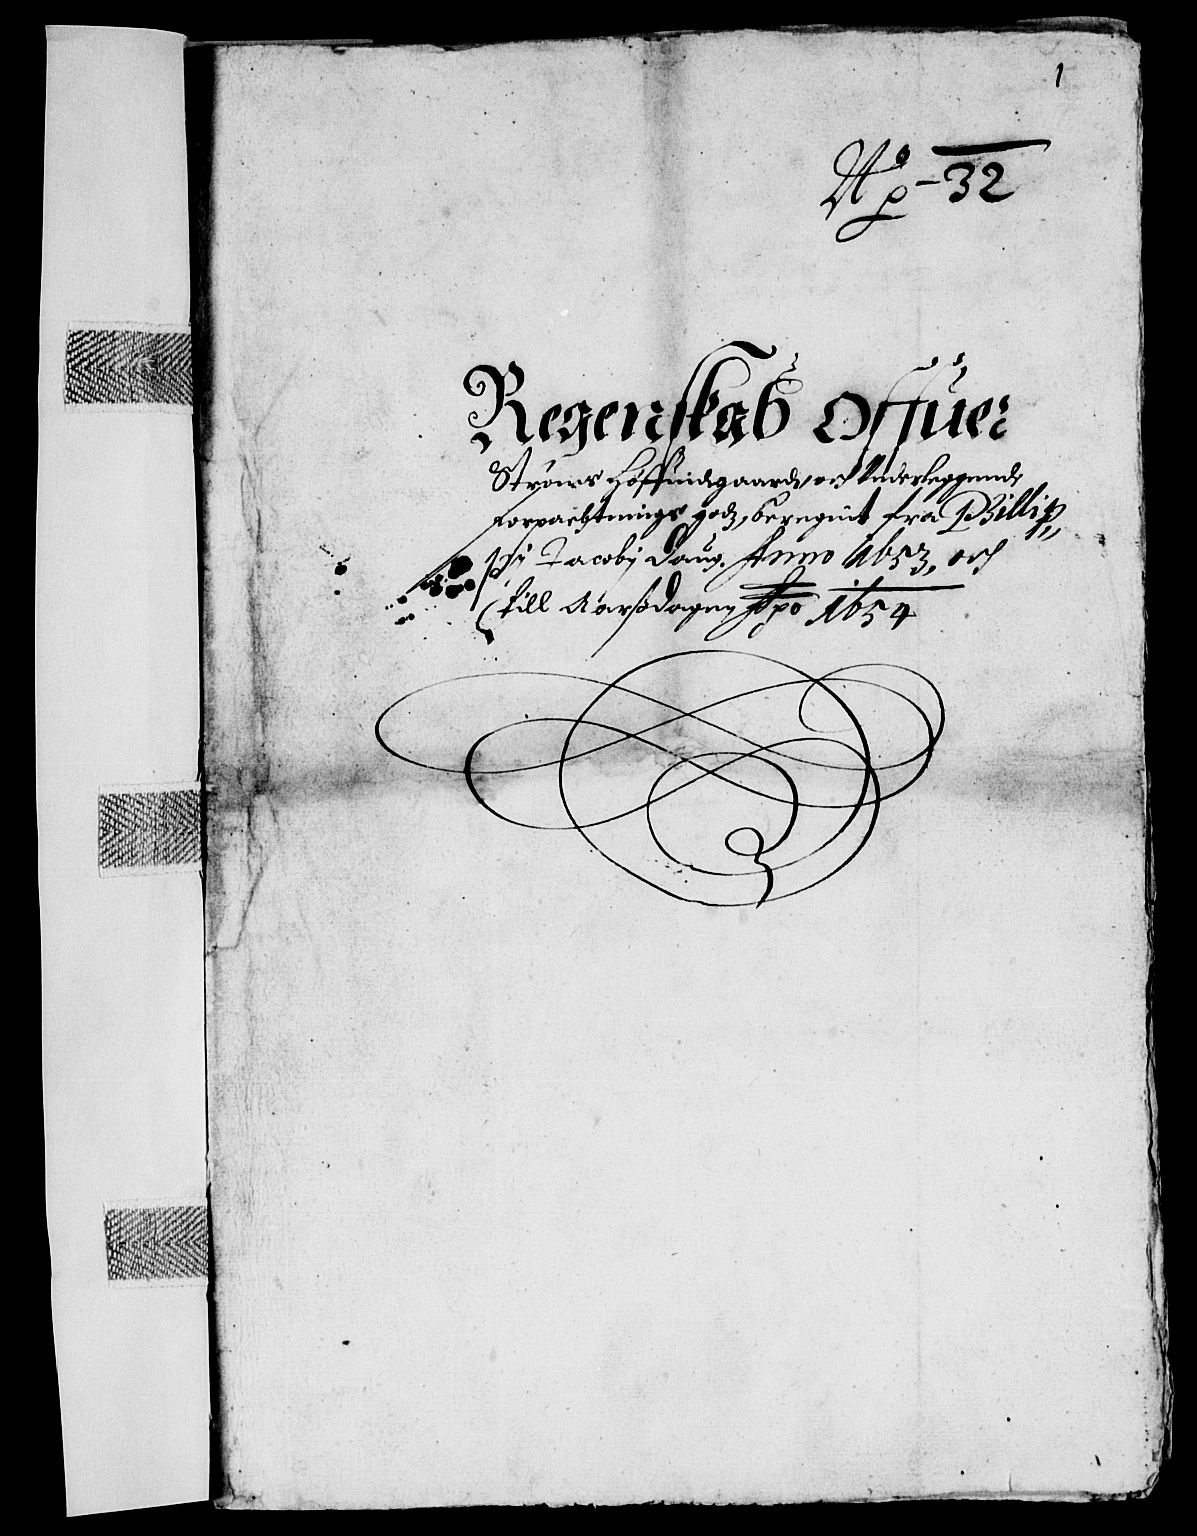 1
No - 32
Regenskab Offuer
Strøms Hoffuidgaard, och Underleggende
forpachtnings godz, beregnit fra Phillip,,
,,pi Jacobij Daug. Anno 1653, och
till Aarsdagen Ao 1654